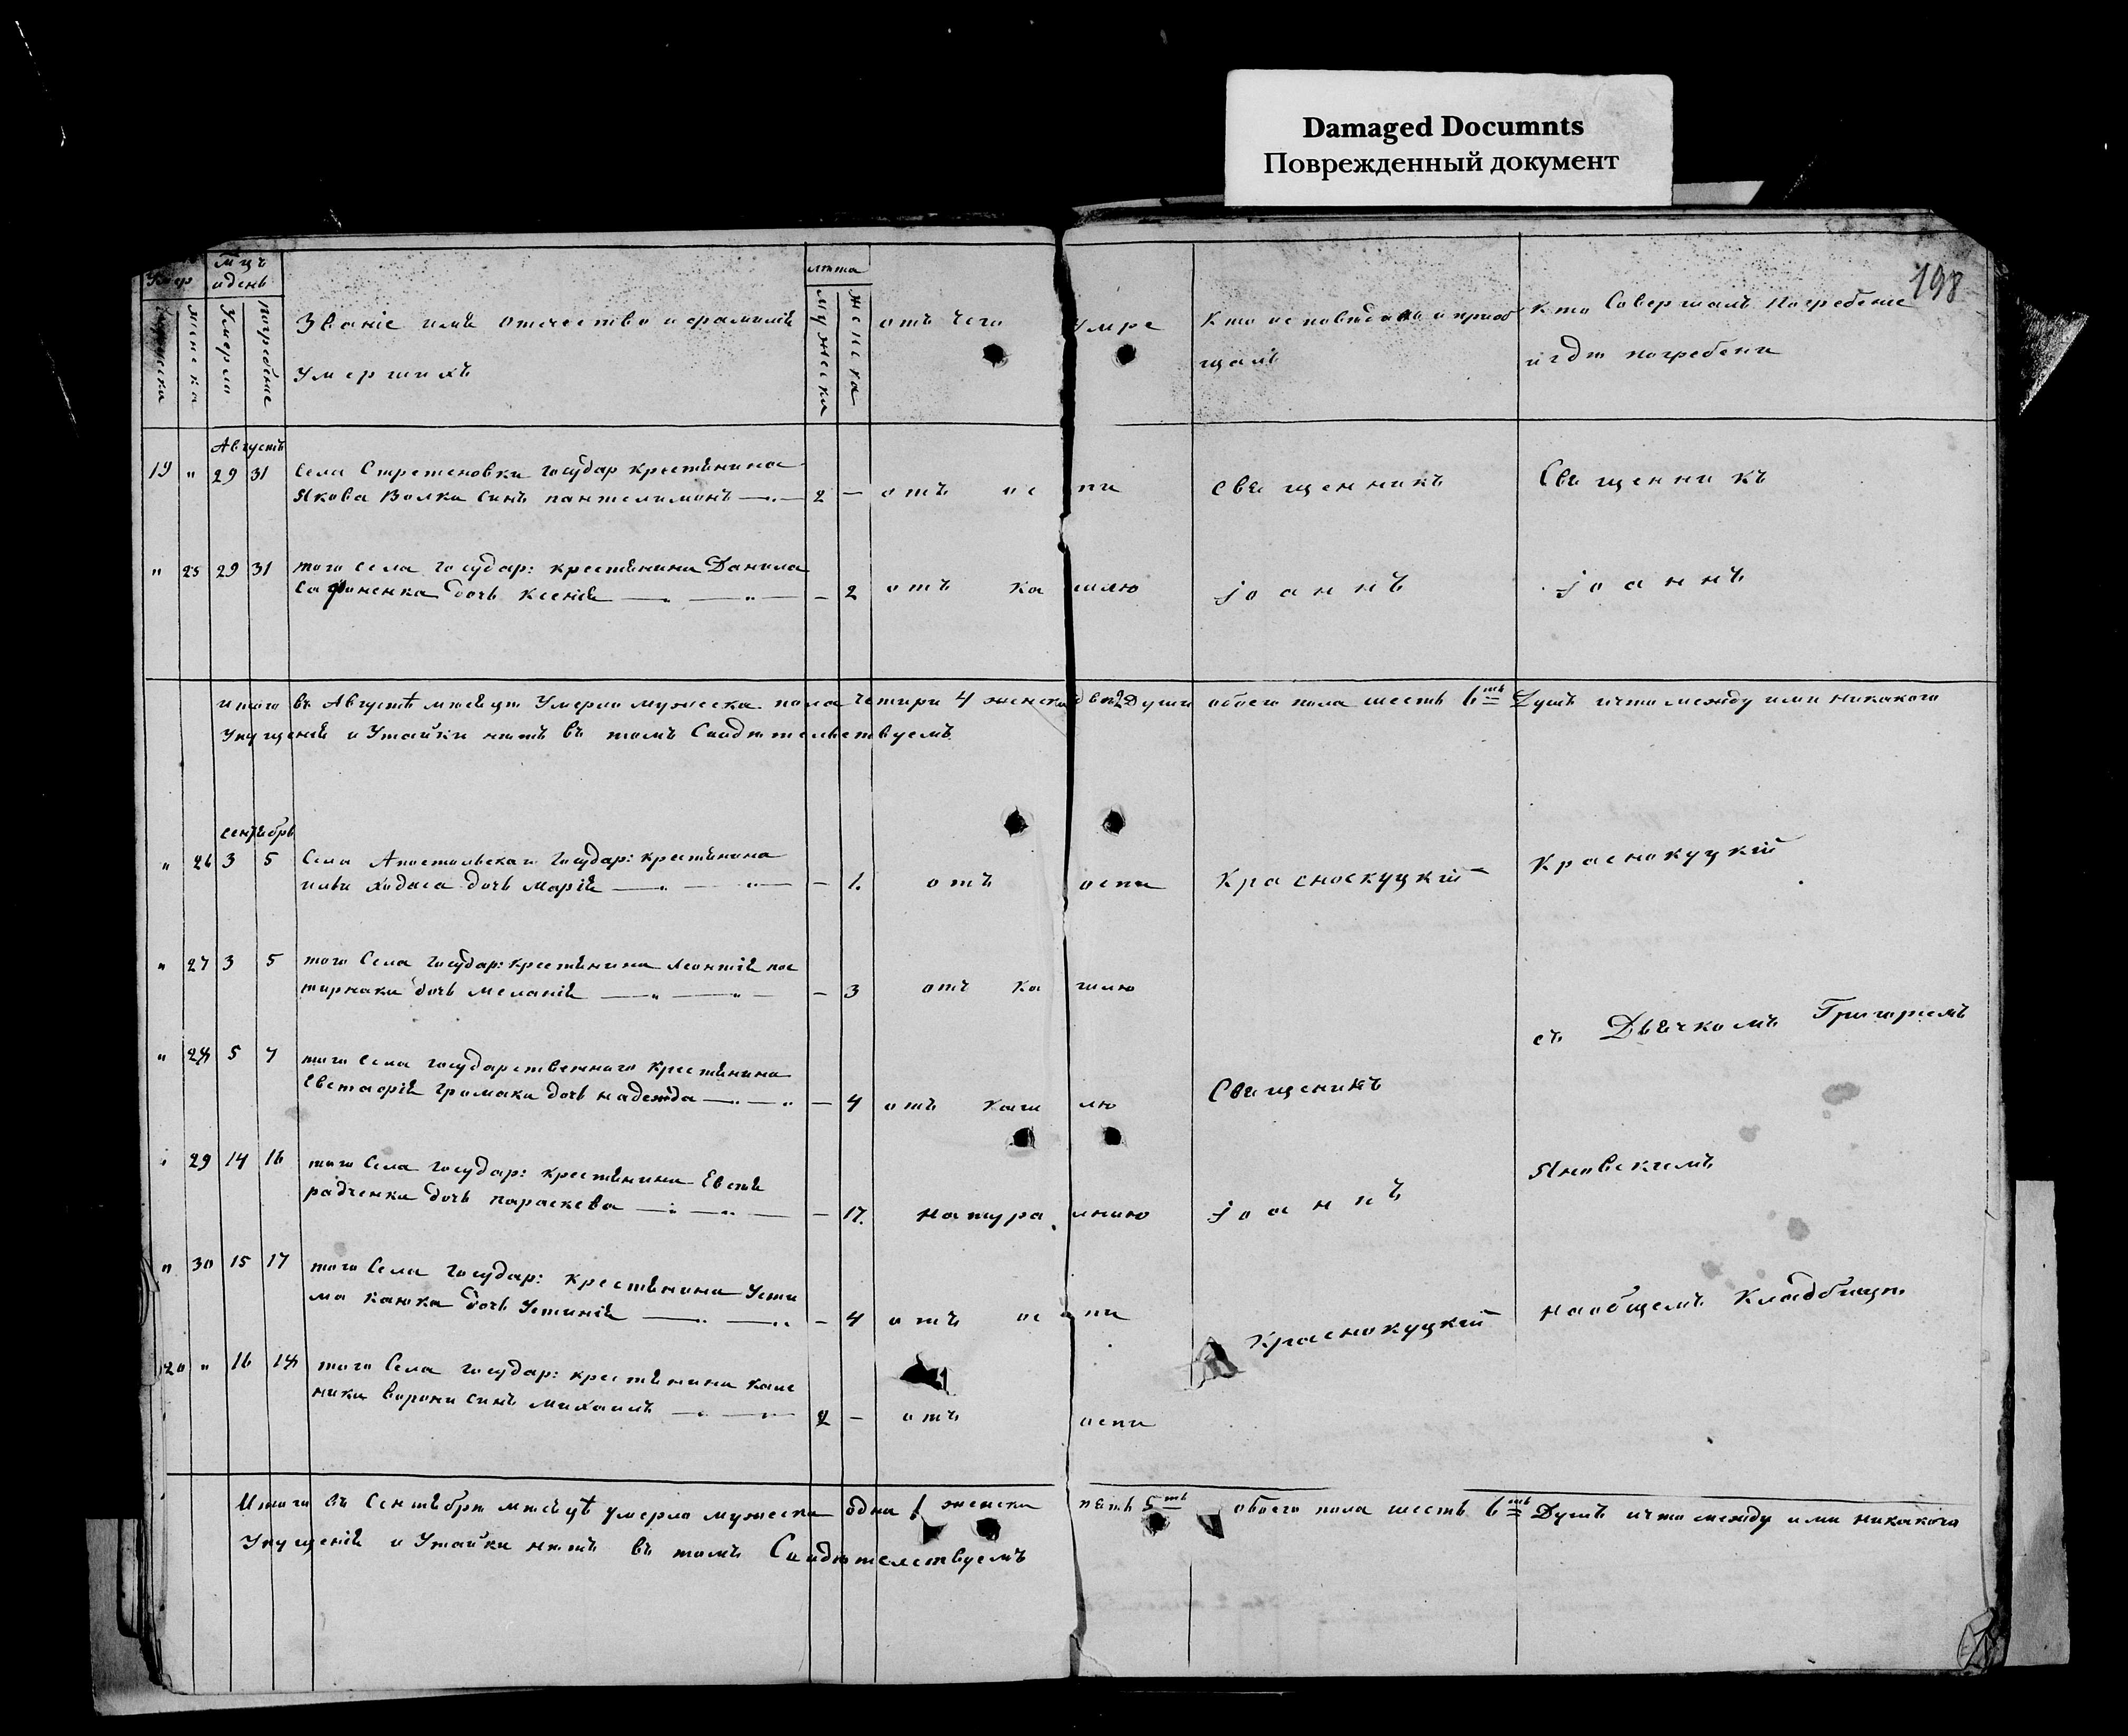 Damaged Documnts
Поврежденный документ
198
Умер мцъ и день лѣта
мужеска женска Умерли погребение
Званіе имя отечество и фамилія
умершихъ
мужеска женска
отъ чего умре
Кто исповѣдовалъ и приоб
щалъ
Кто Совершалъ Погребение
и гдѣ погребени
Августъ
19 " 29 31 Села Стретеновки государ крестянина
Якова Волка синъ пантелимонъ 2 — отъ оспи
Священникъ
Священникъ
" 25 29 31 того села государ: крестянина Данила
Сафоненка дочь Ксенія — 2 отъ кашлю
іоаннъ
іоаннъ
итого въ Августѣ мѣсяцѣ Умерло мужеска пола четири 4 женска две 2 Души обоего пола шесть 6ть Душъ и что между ими никакого
Упущенія и Утайки нѣтъ въ томъ Свидѣтельствуемъ
сентябрь
" 26 3 5 Села Апостольскаго Государ: крестянина
дочь Марія — 1. отъ оспи
Краснокуцкій
Краснокуцкій
" 27 3 5 того Села государ: крестянина Леонтія пос
тирнака дочь Меланія — 3 отъ кашлю
съ Дьячкомъ Григоріемъ
" 28 5 7 того села государственнаго крестянина
Евстафія Громаки дочь надежда — 4 отъ кашлю
Священникъ
" 29 14 16 того Села государ: крестянина Евсѣя
радченка дочь параскева — 17. натуралнию
іоаннъ
Яновскимъ
" 30 15 17 того Села государ: крестянина Усти
ма каюка дочь Устинія — 4 отъ оспи
Краснокуцкій
на общемъ Кладбищѣ
20 " 16 18 того Села государ: крестянина
ника ворони синъ михаилъ 2 — отъ оспи
Итого въ Сентябрѣ мѣсяцѣ умерло мужеска одна 1 женска пять 5ть обоего пола шесть 6ть Душъ и что между ими никакого
Упущенія и Утайки нѣтъ въ томъ Свидѣтелствуемъ